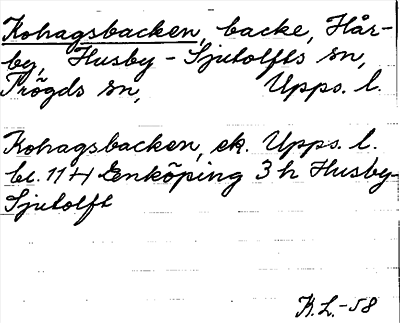 Kohagsbacken, backe, Hår-
by, Husby-Sjutolfts sn,
Trögds sn, Upps. l.
Kohagsbacken, ek. Upps. l.
bl. 11 H Enköping 3 h Husby-
Sjutolft
K.L.-58